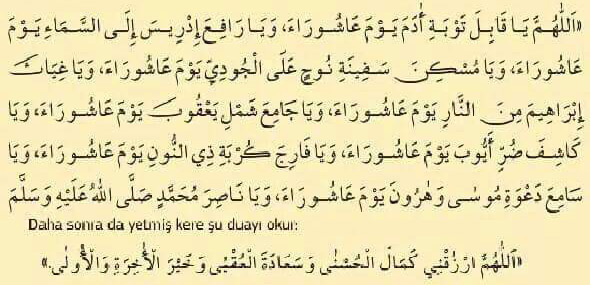 «اَللّٰهُمَّ يَا قَابِلَ تَوْبَةِ أٰدَمَ يَوْمَ عَاشُورَاءَ، وَيَا رَافِعَ إِدْرِيسَ إِلَى السَّمَاءِ يَوْمَ
عَاشُورَاءَ، وَيَا مُسْكِنَ سَفِينَةِ نُوحٍ عَلَى الْجُودِيِّ يَوْمَ عَاشُورَاءَ، وَيَا غِيَاثَ
إِبْرَاهِيمَ مِنَ النَّارِ يَوْمَ عَاشُورَاءَ، وَيَا جَامِعَ شَمْلِ يَعْقُوبَ يَوْمَ عَاشُورَاءَ، وَيَا
كَاشِفَ ضُرِّ أَيُّوبَ يَوْمَ عَاشُورَاءَ، وَيَا فَارِجَ كُرْبَةِ ذِي النُّونِ يَوْمَ عَاشُورَاءَ، وَيَا
سَامِعَ دَعْوَةِ مُوسٰى وَهٰرُونَ يَوْمَ عَاشُورَاءَ، وَيَا نَاصِرَ مُحَمَّدٍ صَلَّى اللّٰهُ عَلَيْهِ وَسَلَّمَ
Daha sonra da yetmiş kere şu duayı okur:
«اَللّٰهُمَّ ارْزُقْنِي كَمَالَ الْحُسْنٰى وَسَعَادَةَ الْعُقْبٰى وَخَيْرَ الْأٰخِرَةِ وَالْأُولٰى.»